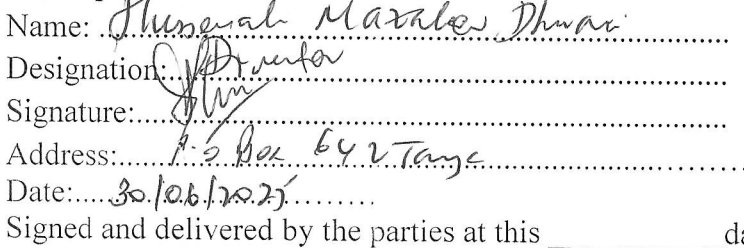 Name: Hussenali Mazaher Dhirani
Designation: Director
Signature:
Address: P.O Box 642 Tanga
Date: 30/06/2025
Signed and delivered by the parties at this ________ da